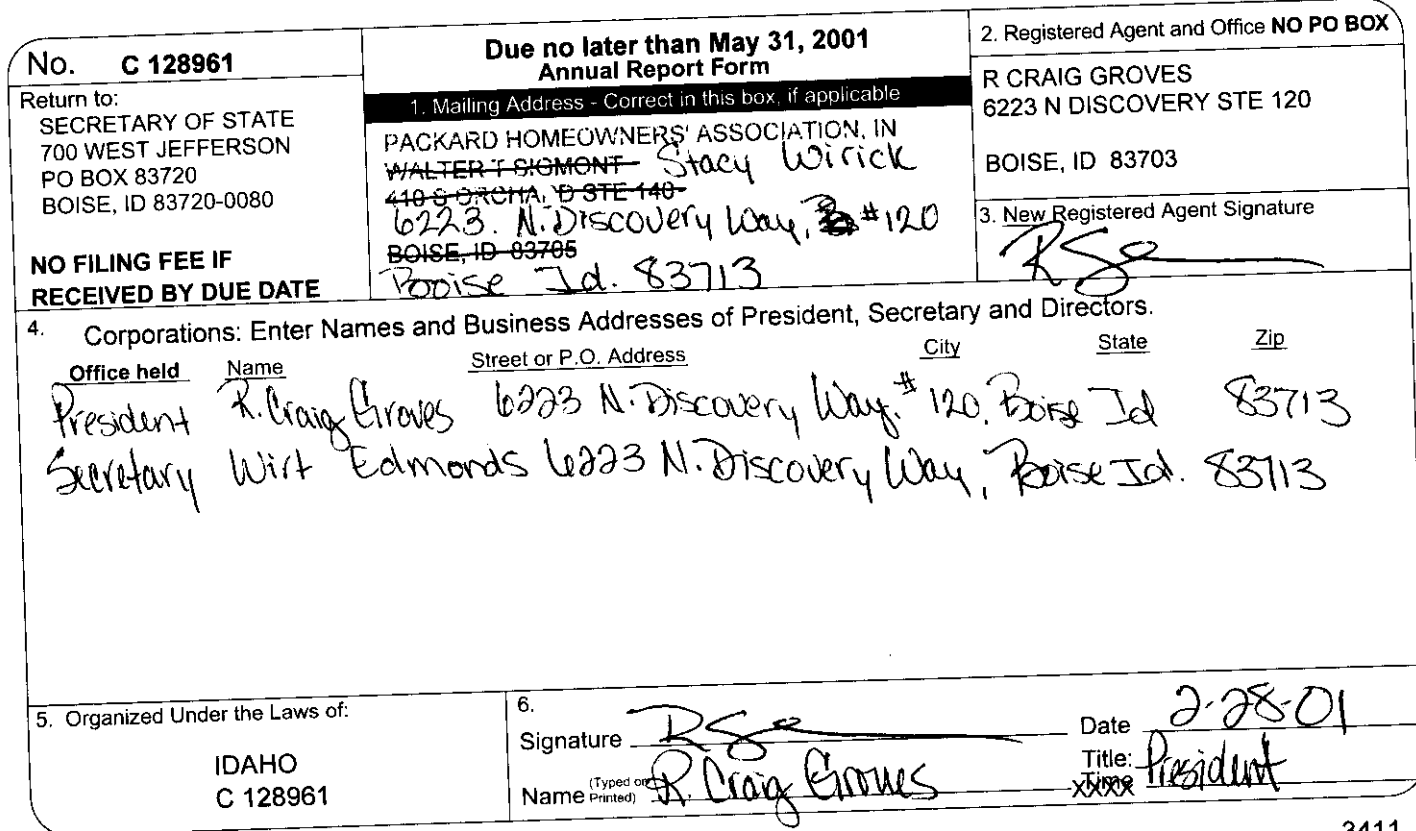 No. C 128961
Return to:
SECRETARY OF STATE
700 WEST JEFFERSON
PO BOX 83720
BOISE, ID 83720-0080
NO FILING FEE IF
RECEIVED BY DUE DATE
Due no later than May 31, 2001
Annual Report Form
1. Mailing Address - Correct in this box, if applicable
PACKARD HOMEOWNERS' ASSOCIATION, IN
WALTER T SIGMONT Stacy Wirick
410 S ORCHA D STE 140
6223. N. Discovery Way, #120
BOISE, ID 83705
Booise Id. 83713
2. Registered Agent and Office NO PO BOX
R CRAIG GROVES
6223 N DISCOVERY STE 120
BOISE, ID 83703
3. New Registered Agent Signature
4. Corporations: Enter Names and Business Addresses of President, Secretary and Directors.
Office held Name Street or P.O. Address City State Zip
President R. Craig Groves 6223 N. Discovery Way, # 120, Boise Id 83713
Secretary Wirt Edmonds 6223 N. Discovery Way, Boise Id. 83713
5. Organized Under the Laws of:
IDAHO
C 128961
6.
Signature Date 2-28-01
Name (Typed or Printed) R. Craig Groves Title: President
3411